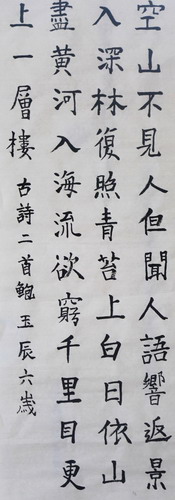 空山不見人但聞人語響返景
入深林復照青苔上白日依山
盡黃河入海流欲窮千里目更
上一層樓 古詩二首鮑玉辰六歲